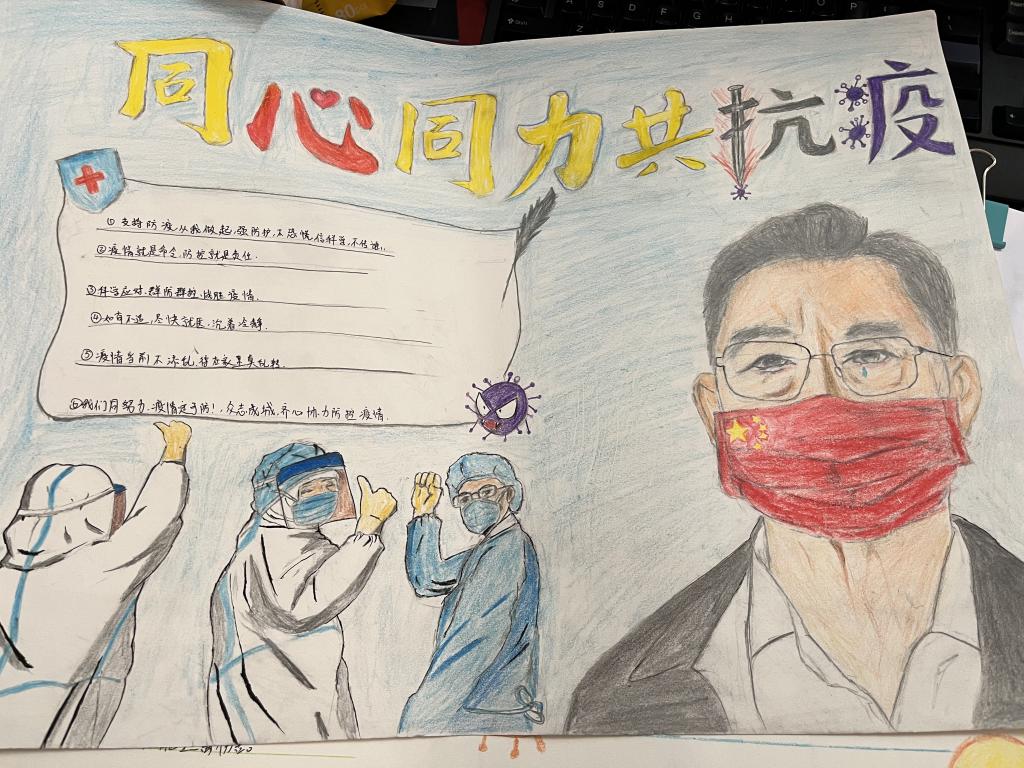 同心同力共抗疫
①支持防疫从我做起,强防护,不恐慌,信科学,不传谣.
②疫情就是命令,防控就是责任.
③科学应对,群防群控,战胜疫情.
④如有不适,尽快就医,沉着冷静.
⑤疫情当前不添乱,待在家里莫乱转.
⑥我们同努力,疫情定可防!,众志成城,齐心协力防控疫情.